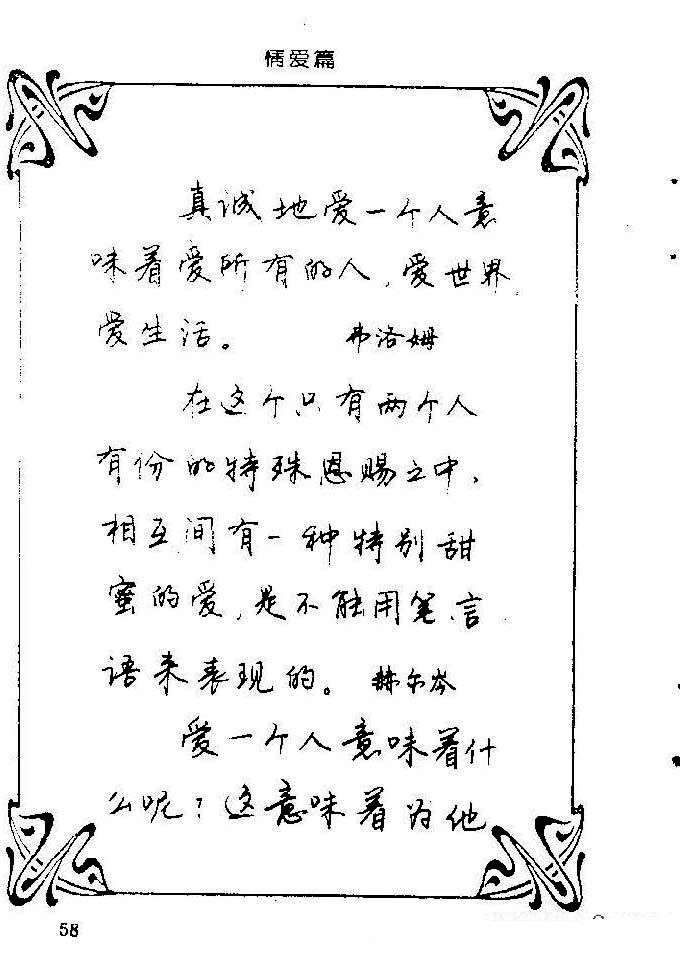 情爱篇
真诚地爱一个人意
味着爱所有的人，爱世界，
爱生活。 弗洛姆
在这个只有两个人
有份的特殊恩赐之中，
相互间有一种特别甜
蜜的爱，是不能用笔、言
语来表现的。 赫尔岑
爱一个人意味着什
么呢？这意味着为他
58